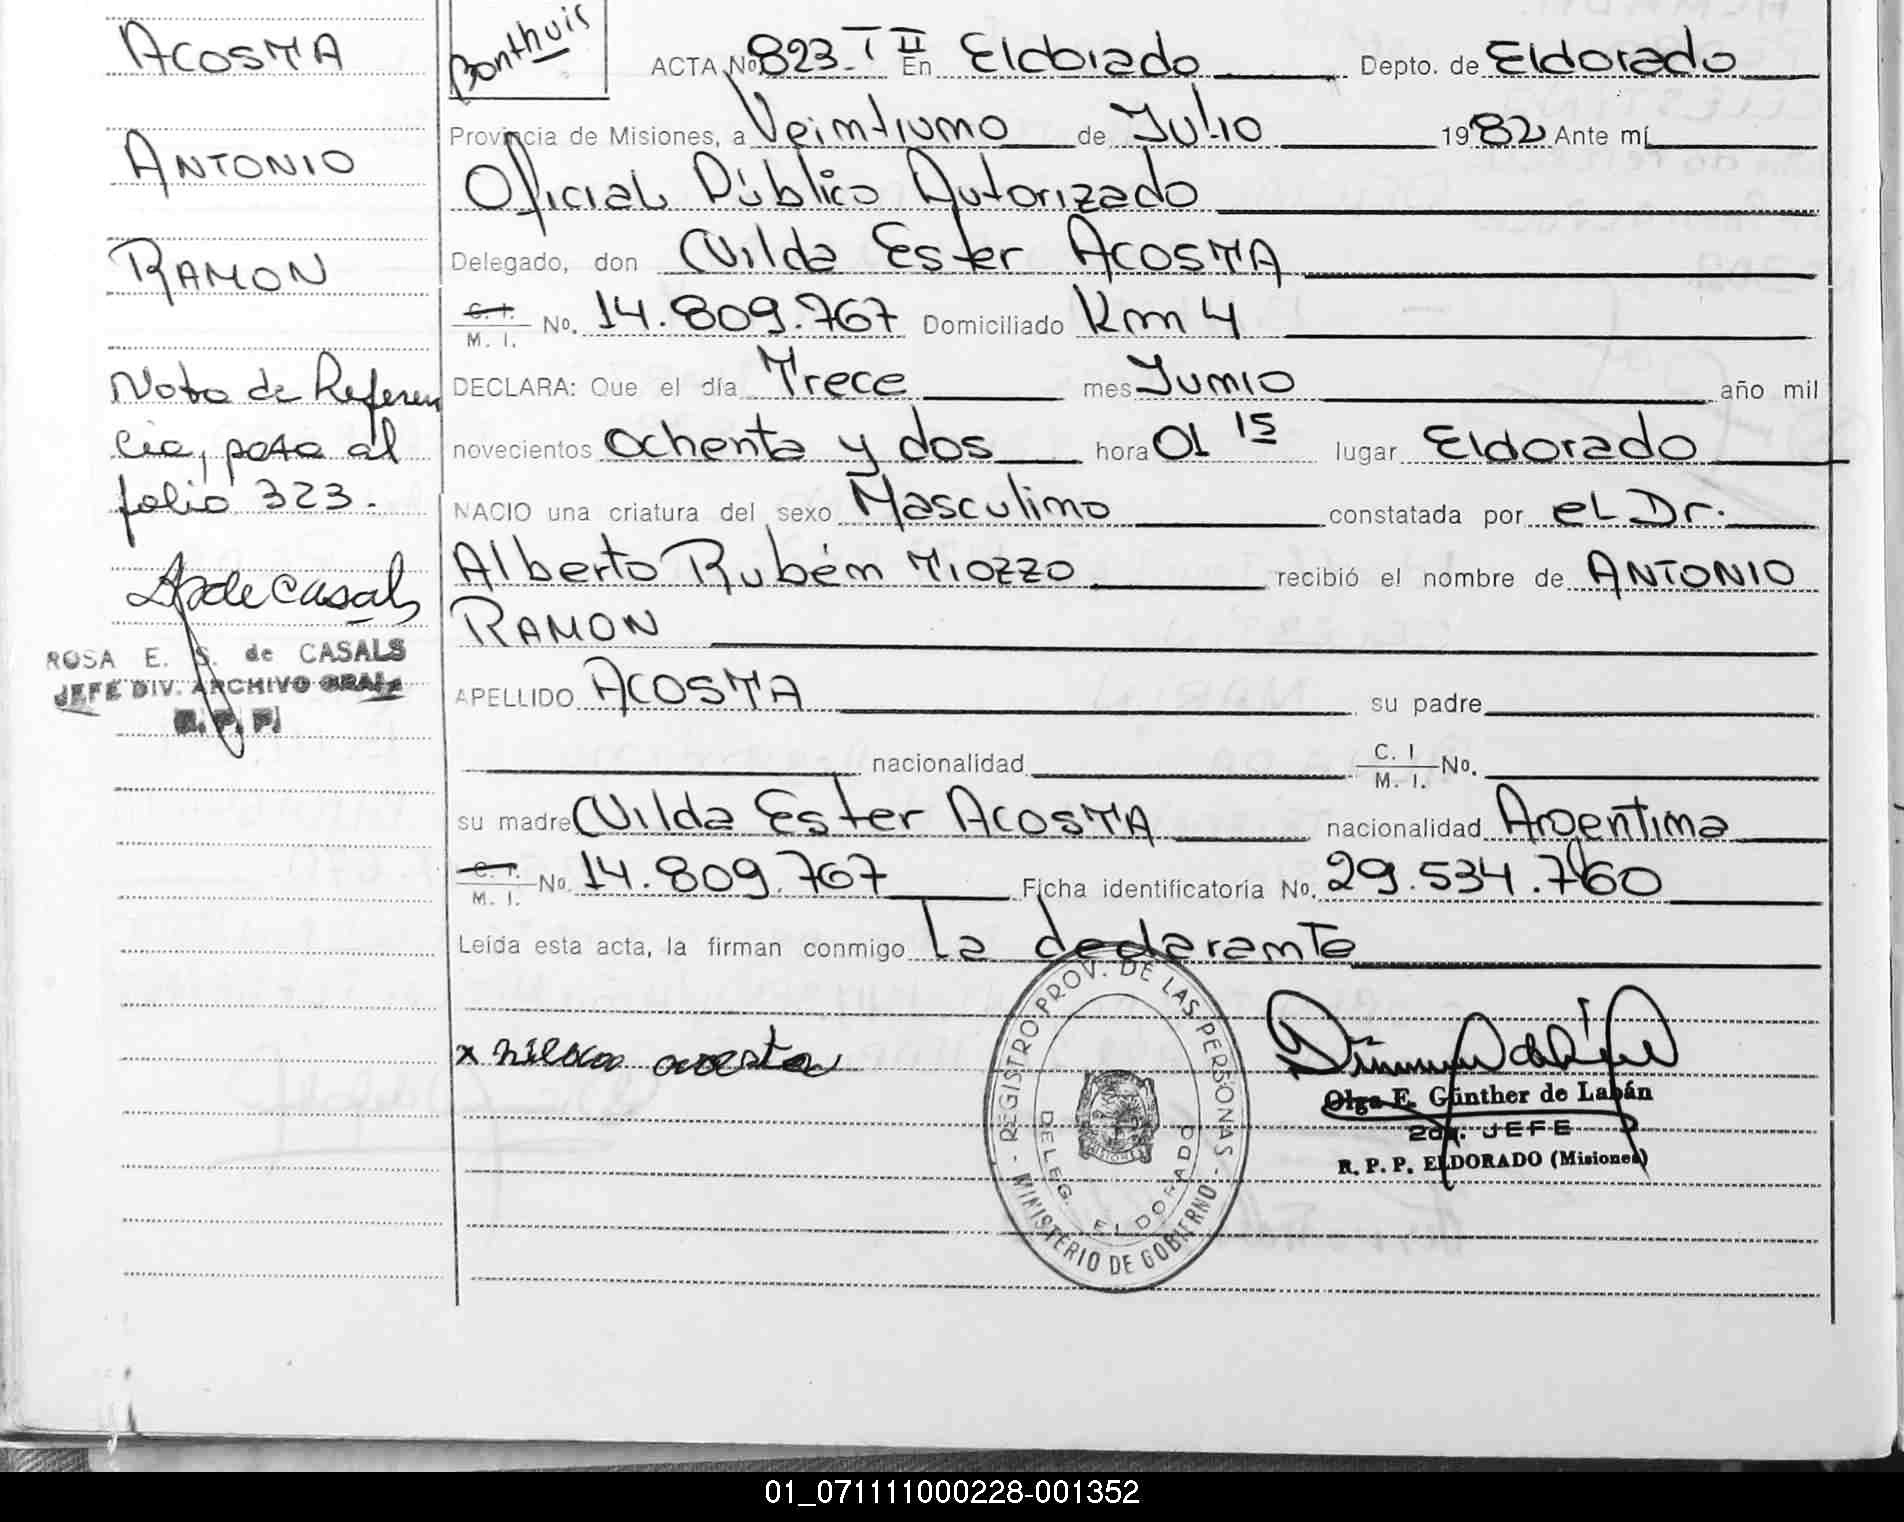 ACOSTA
ANTONIO
RAMON
Nota de Referen
cia, pasa al
folio 323.
ROSA E. S. de CASALS
JEFE DIV. ARCHIVO GRAL
R. P. P.
Bonthuis
ACTA No 823 T II En Eldorado Depto. de Eldorado
Provincia de Misiones, a Veintiuno de Julio 1982 Ante mí
Oficial Público Autorizado
Delegado, don Nilda Ester ACOSTA
C. I. / M. I. No. 14.809.767 Domiciliado Km 4
DECLARA: Que el día Trece mes Junio año mil
novecientos ochenta y dos hora 01 15 lugar Eldorado
NACIO una criatura del sexo Masculino constatada por el Dr.
Alberto Rubén TIOZZO recibió el nombre de ANTONIO
RAMON
APELLIDO ACOSTA su padre
nacionalidad C. I / M. I. No.
su madre Nilda Ester ACOSTA nacionalidad Argentina
C. I. / M. I. No. 14.809.767 Ficha identificatoria No. 29.534.760
Leída esta acta, la firman conmigo la declarante
x nilda acosta
- REGISTRO PROV. DE LAS PERSONAS -
MINISTERIO DE GOBIERNO
DELEG. ELDORADO
Olga E. Günther de Labán
2da. JEFE
R. P. P. ELDORADO (Misiones)
01_071111000228-001352